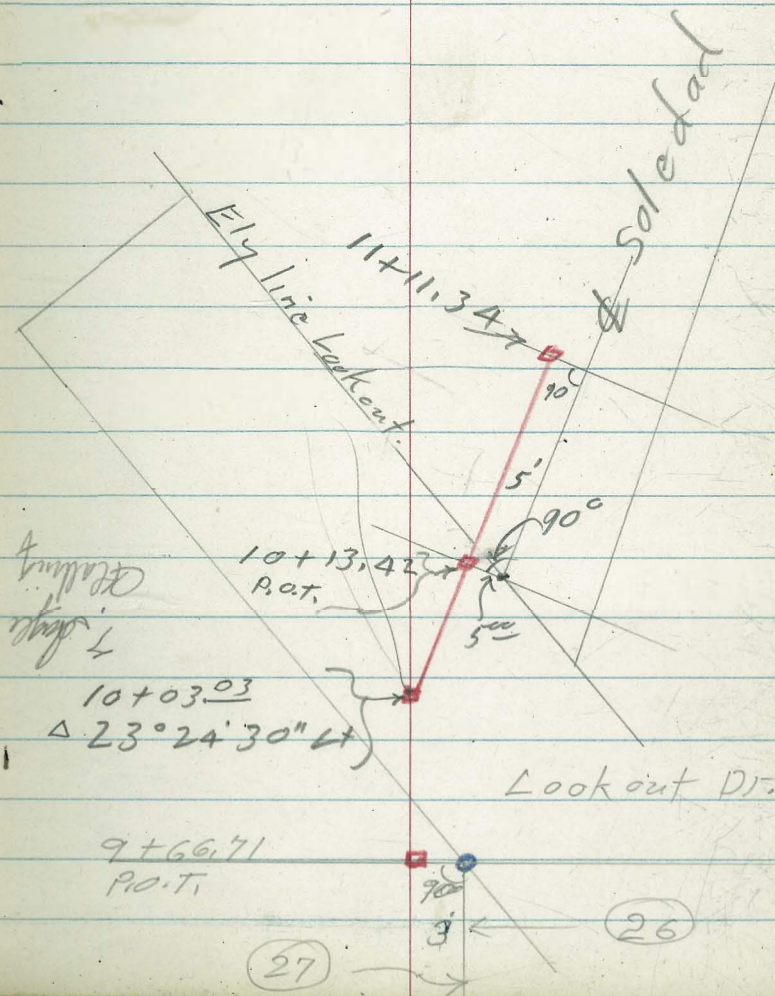 ℄ Soledad
Ely line Lookout.
11+11.34
90
5'
90°
10+13.42
P.O.T.
5"
10+03.03
Δ 23°24'30" Lt
Lookout Dr.
9+66.71
P.O.T.
90
3'
26
27